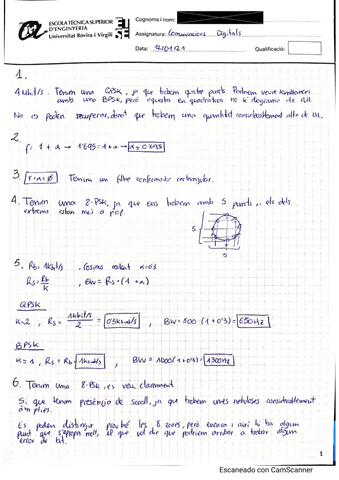 ESCOLA TÈCNICA SUPERIOR
D'ENGINYERIA
Universitat Rovira i Virgili
Cognoms i nom:
Assignatura: Comunicacions Digitals
Data: 12/01/21 Qualificació:
1.
4 Mbit/s. Tenim una QPSK, ja que trobem quatre punts. Podríem veure semblances
amb una BPSK, però aquesta en quadratura no té diagrama de ull.
No es poden recuperar, donat que trobem una quantitat considerablement alta de ISI.
2.
1 + α → 1'695 = 1 + α → α = 0'695
3. r = α = ∅ Tenim un filtre conformador rectangular.
4. Tenim una 8-PSK, ja que ens trobem amb 5 punts, els dels
extrems estan més a prop
5
5
5. Rb = 1kbit/s, Cosinus realçat α = 0'3
Rs = Rb/k, BW = Rs · (1 + α)
QPSK
k=2, Rs = 1kbit/s / 2 = 0'5 ksimb/s, BW = 500 · (1 + 0'3) = 650 Hz
BPSK
k = 1, Rs = Rb = 1ksimb/s, BW = 1000 (1 + 0'3) = 1300 Hz
6. Tenim una 8-PSK, es veu clarament.
Sí que tenim presència de soroll, ja que trobem unes núvoloses considerablement
àmplies.
Es poden distingir prou bé les 8 zones, però encara i així hi ha algun
punt que s'apropa molt, el que vol dir que podríem arribar a trobar algun
error de bit.
1
Escaneado con CamScanner